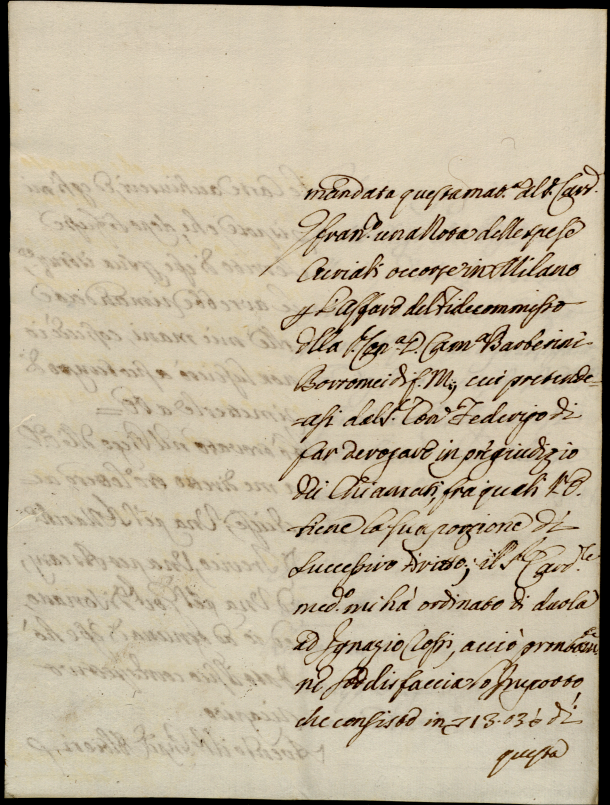 mandata questa mat.a al S.r Card.
Fran.o una Nota delle spese
Civiali occorse in Milano
p L'affare del Fidecommisso
della S.ra Con.a D. Cam.a Barberini
Borromei di f. M., cui pretende-
asi dal S.r Con.e Federigo di
far derogare in pregiudizio
dei Chiamati fra quali V. E.
tiene la sua porzione di
successivo diritto; il S.r Card.le
med.o mi hà ordinato di darla
ad Ignazio, acciò prontam.te
ne sodisfaccia l'Importo
che consiste in 18:03 di
questa